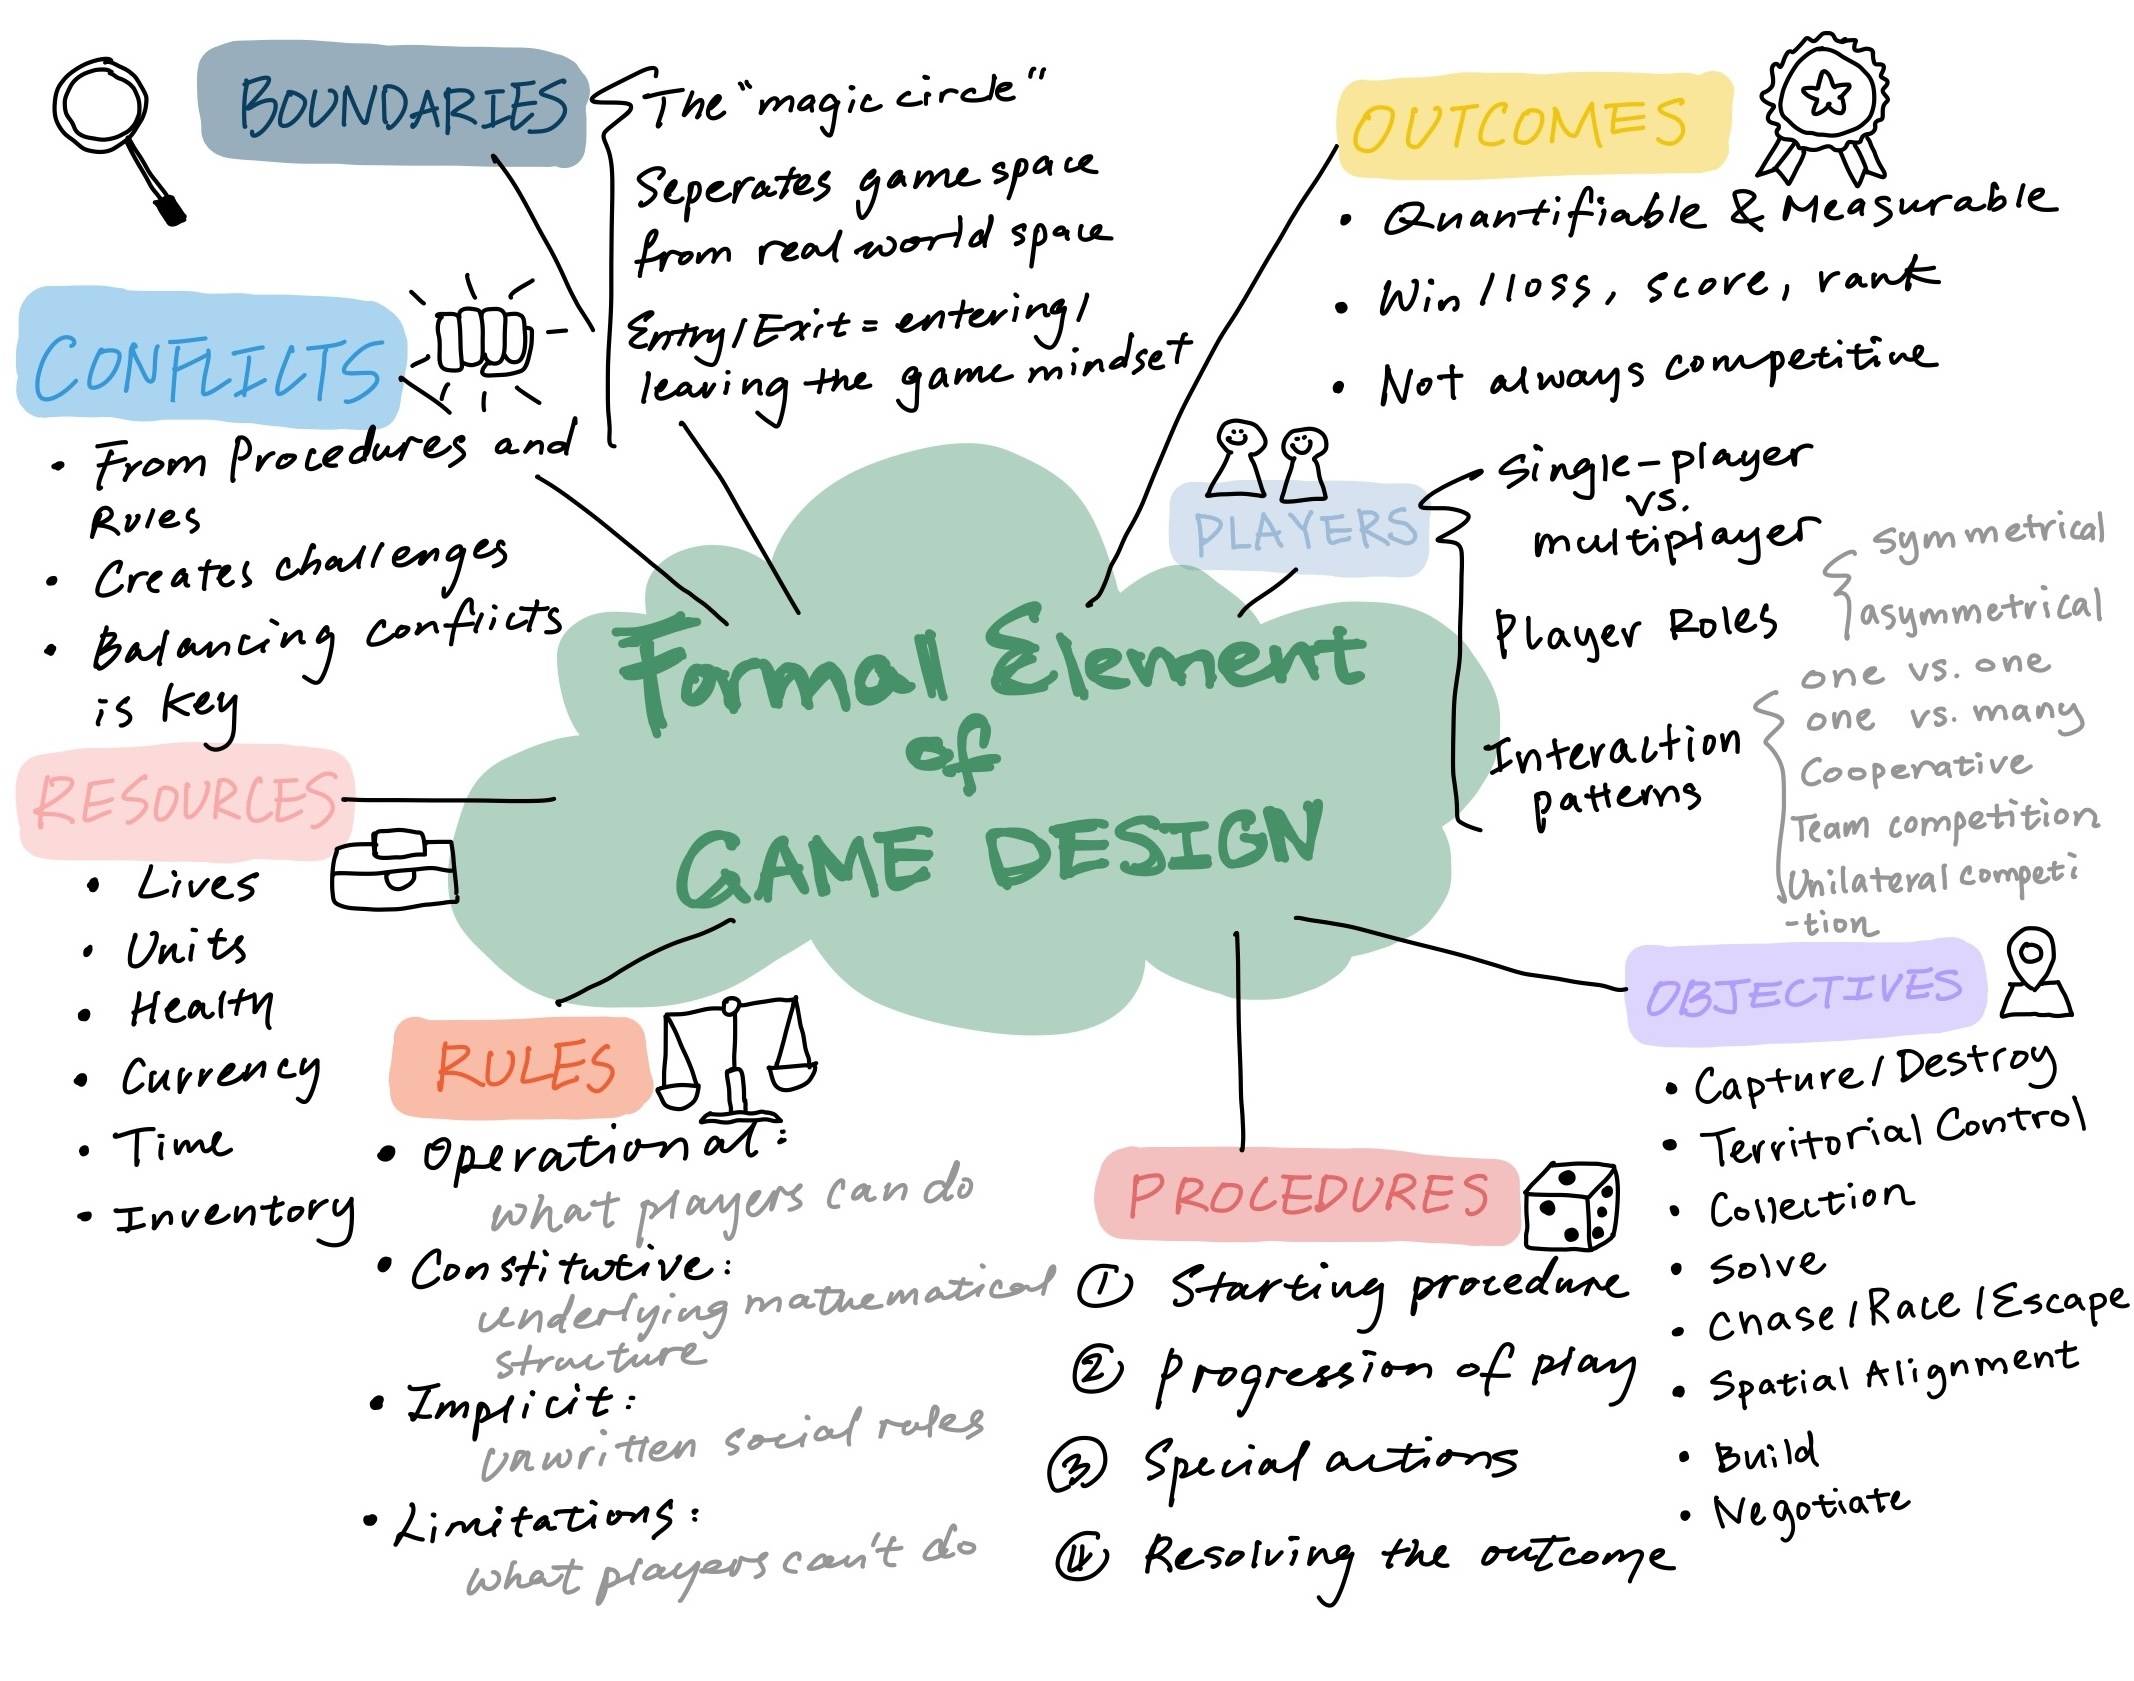 BOUNDARIES
The "magic circle"
Seperates game space
from real world space
Entry/Exit = entering/
leaving the game mindset
OUTCOMES
• Quantifiable & Measurable
• Win/loss, score, rank
• Not always competitive
CONFLICTS
• From Procedures and
Rules
• Creates challenges
• Balancing conflicts
is key
PLAYERS
Single-player
vs.
multiplayer
Player Roles
symmetrical
asymmetrical
Interaction
patterns
one vs. one
one vs. many
Cooperative
Team competition
Unilateral competi
-tion
Formal Element
of
GAME DESIGN
RESOURCES
• Lives
• Units
• Health
• Currency
• Time
• Inventory
RULES
• Operational:
what players can do
• Constitutive:
underlying mathematical
structure
• Implicit:
unwritten social rules
• Limitations:
what players can't do
PROCEDURES
① Starting procedure
② Progression of play
③ Special actions
④ Resolving the outcome
OBJECTIVES
• Capture/Destroy
• Territorial Control
• Collection
• Solve
• Chase/Race/Escape
• Spatial Alignment
• Build
• Negotiate